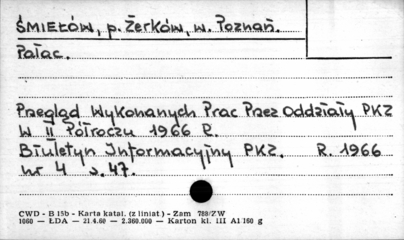 ŚMIEŁÓW, p. Żerków, w. Poznań.
Pałac.
Przegląd Wykonanych Prac Przez Oddziały PKZ
W II Półroczu 1966 R.
Biuletyn Informacyjny PKZ. R. 1966
nr 4 s. 47.
CWD - B 15b - Karta katal. (z liniat) - Zam 788/ZW
1060 — ŁDA — 21.4.60 — 2.360.000 — Karton kl. III A1 160 g